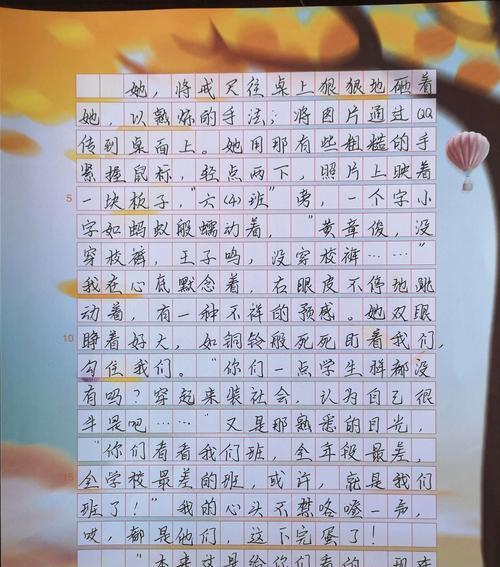 她，将戒尺往桌上狠狠地砸着
她，以熟练的手法，将图片通过QQ
传到桌面上。她用那有些粗糙的手
紧握鼠标，轻点两下，照片上映着
5 一块板子，“六(4)班”旁，一个字小
字如蚂蚁般蠕动着，“黄章俊，没
穿校裤，王子鸣，没穿校裤……”
我在心底默念着，右眼皮不停地跳
动着，有一种不祥的预感。她双眼
10 睁着好大，如铜铃般死死盯着我们，
勾住我们。“你们一点学生样都没
有吗？穿起来装社会，认为自己很
牛是吧……”又是那熟悉的目光，
“你们看看我们班，全年段最差，
15 全学校最差的班，或许，就是我们
班了！”我的心头不禁咯噔一声，
哎，都是他们，这下完蛋了！
是给你们看的